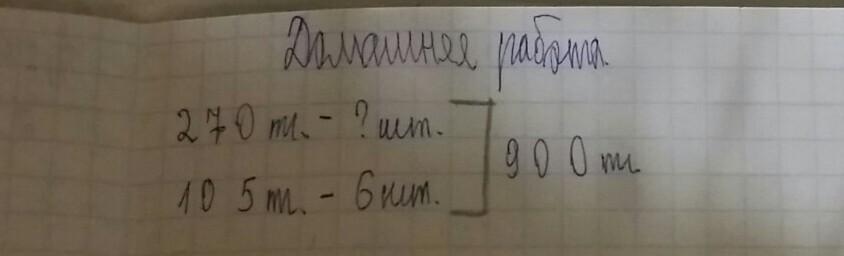 Домашняя работа.
270 т. - ? шт.
105 т. - 6 шт.
900 т